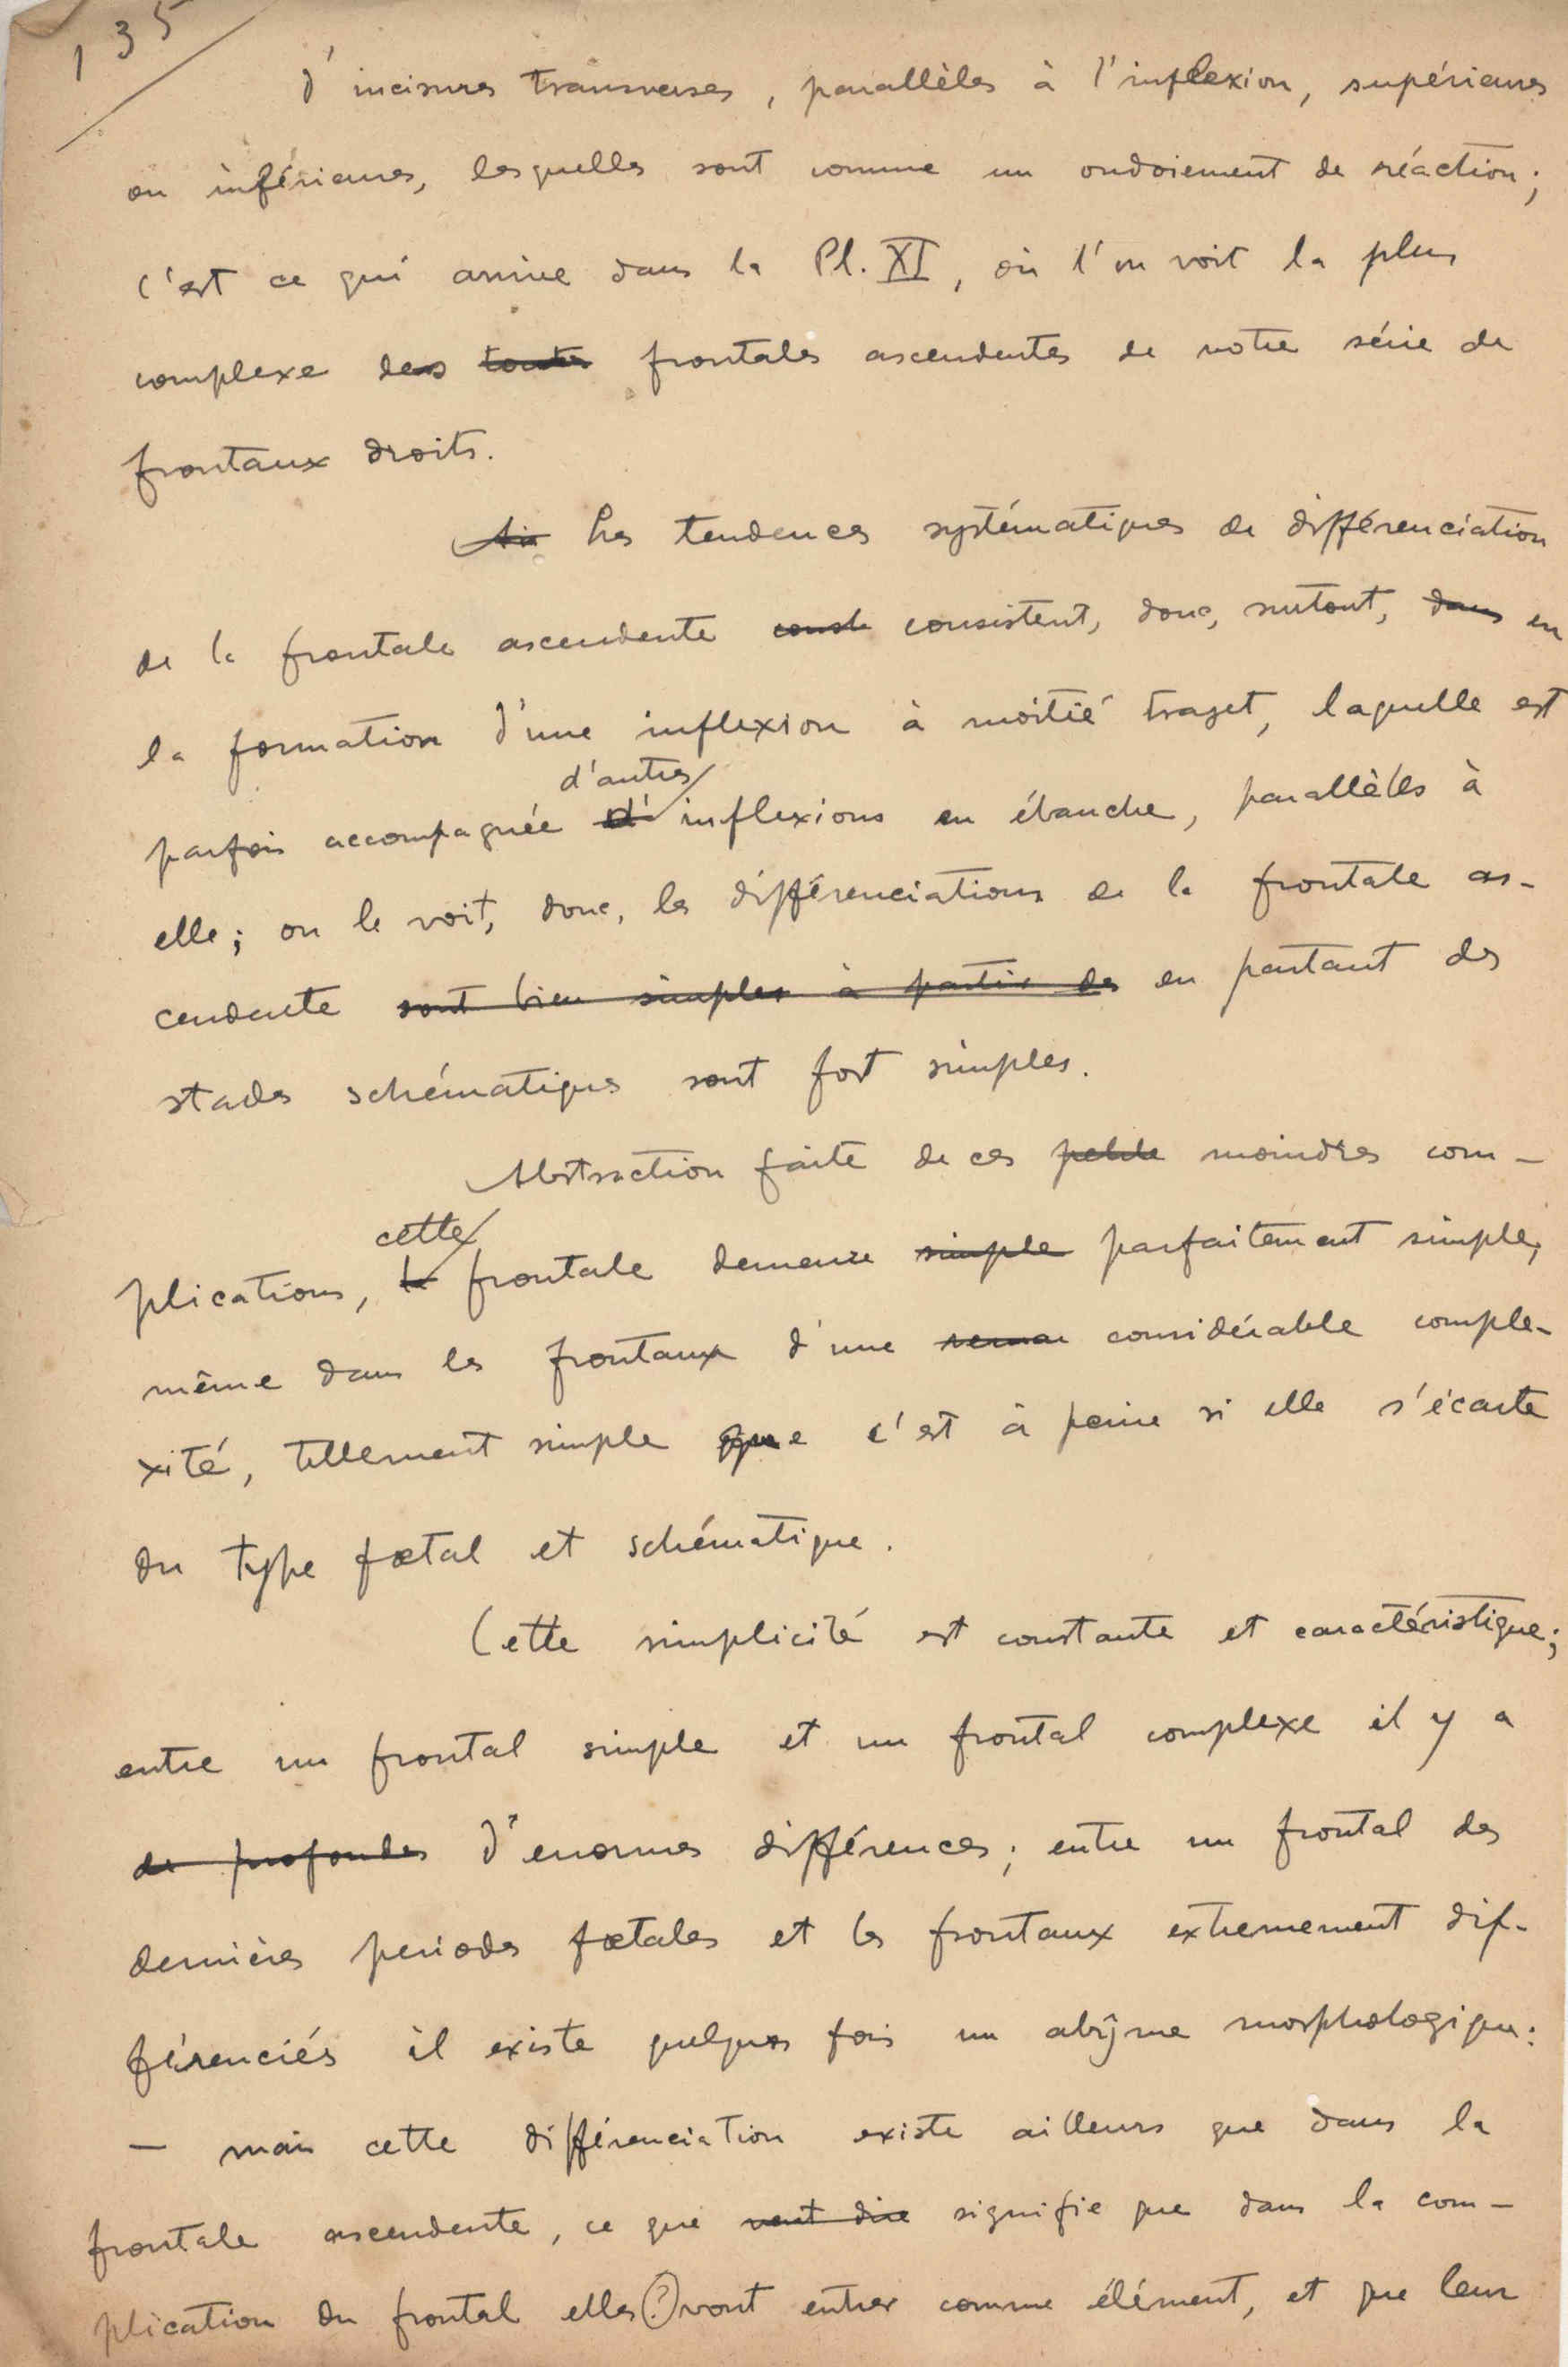 135
d'incisures transverses, parallèles à l'inflexion, supérieures
ou inférieures, lesquelles sont comme un ondoiement de réaction;
c'est ce qui arrive dans la Pl. XI, où l'on voit la plus
complexe des toutes frontales ascendentes de notre série de
frontaux droits.
Ain Les tendences systématiques de différenciation
de la frontale ascendente consti consistent, donc, surtout, dans en
la formation d'une inflexion à moitié trajet, laquelle est
d'autres
parfois accompagnée d' inflexions en ébauche, parallèles à
elle; on le voit, donc, les différenciations de la frontale as-
cendente sont bien simples à partir des en partant des
stades schématiques sont fort simples.
Abstraction faite de ces petite moindres com-
cette
plications, la frontale demeure simple parfaitement simple,
même dans les frontaux d'une considérable comple-
xité, tellement simple que c'est à peine si elle s'écarte
du type fœtal et schématique.
Cette simplicité est constante et caractéristique;
entre un frontal simple et un frontal complexe il y a
de profondes d'enormes différences; entre un frontal des
dernières periodes fœtales et les frontaux extremement dif-
férenciés il existe quelques fois un abŷme morphologique:
— mais cette différenciation existe ailleurs que dans la
frontale ascendente, ce que veut dire signifie que dans la com-
plication du frontal elles (?) vont entrer comme élément, et que leur